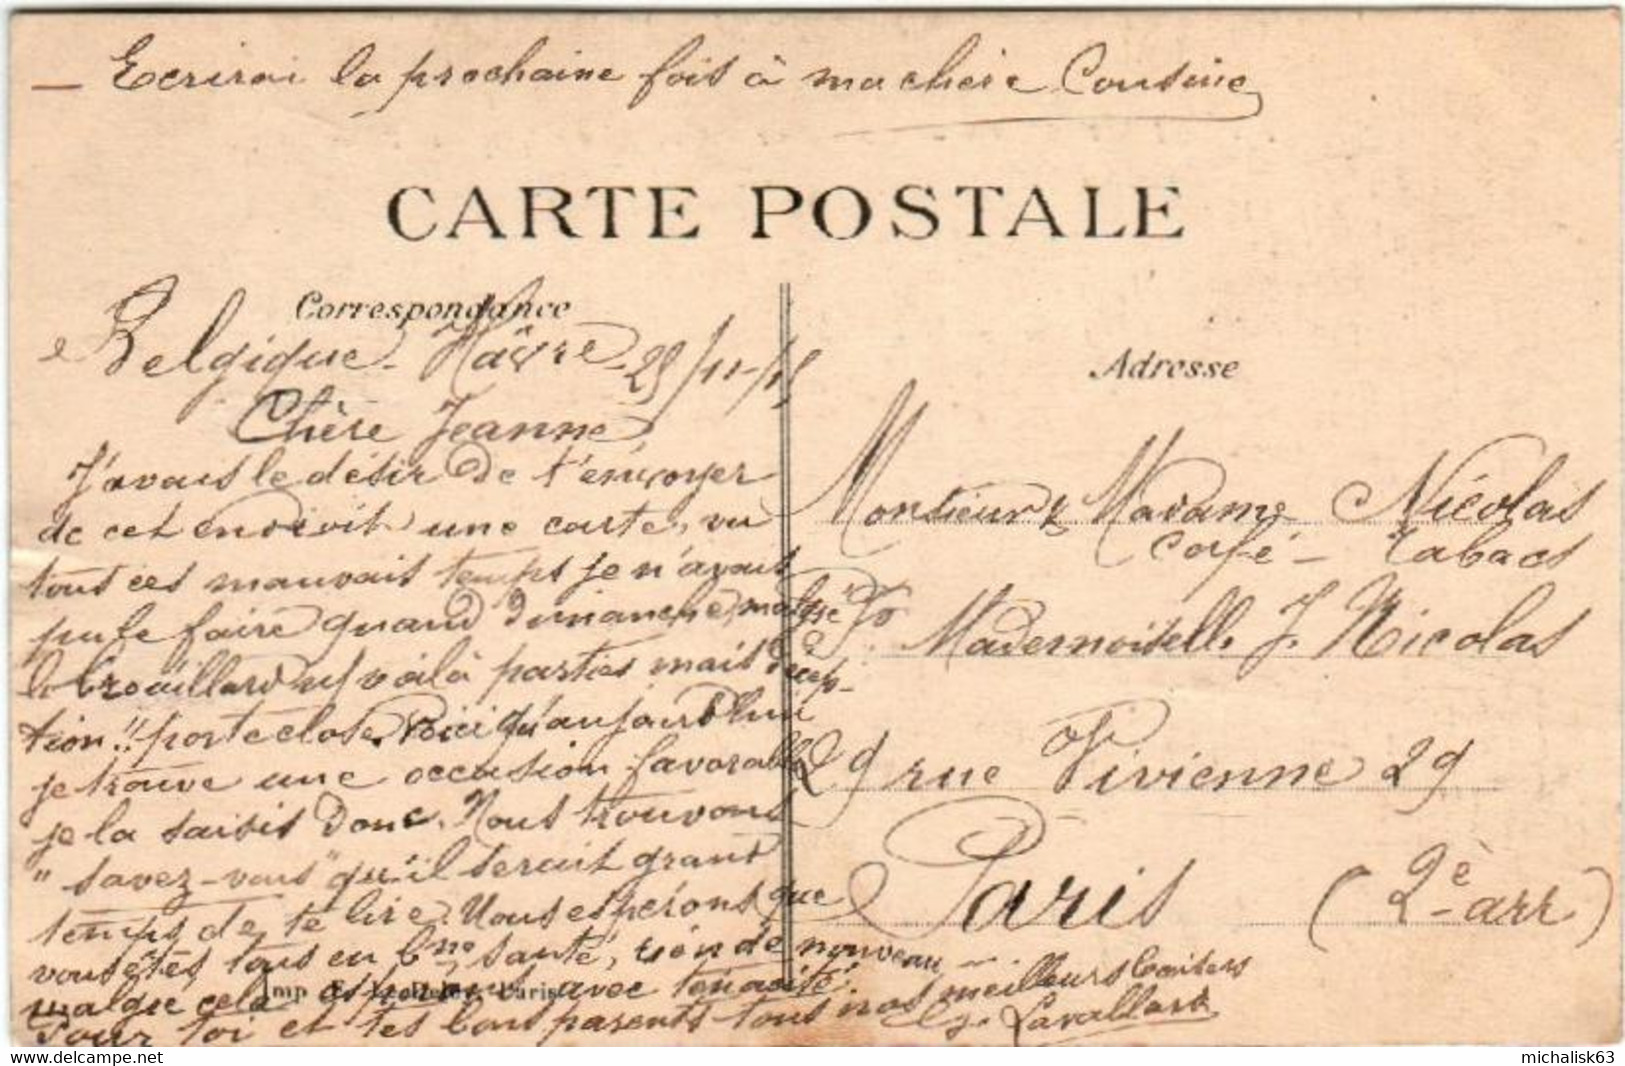 — Ecrirai la prochaine fois à ma chère Cousine
CARTE POSTALE
Correspondance
Belgique - Hâvre - 25/11-15
Chère Jeanne
J'avais le désir de t'envoyer
de cet endroit une carte, vu
tous ces mauvais temps je n'avais
pu le faire quand dimanche, malgré
le brouillard n/ voilà partis mais décep-
tion !! porte close. Voici qu'aujourd'hui
je trouve une occasion favorable
je la saisis donc. Nous trouvons
"savez-vous" qu'il serait grand
temps de te lire. Nous espérons que
vous êtes tous en bne santé, rien de nouveau
malgré cela espérons avec ténacité.
Pour toi et tes bons parents tous nos meilleurs baisers
Lavallard
Imp Paris
Adresse
Monsieur & Madame Nicolas
Café - Tabacs
Pr Mademoiselle J. Nicolas
29 rue Vivienne 29
Paris (2è arr)
michalisk63